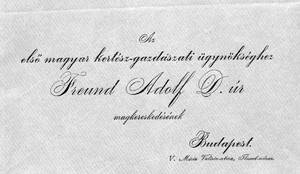 Az
első magyar kertész-gazdászati ügynökséghez
Freund Adolf D. úr
magkereskedésének
Budapest.
V. Mária Valéria-utcza,